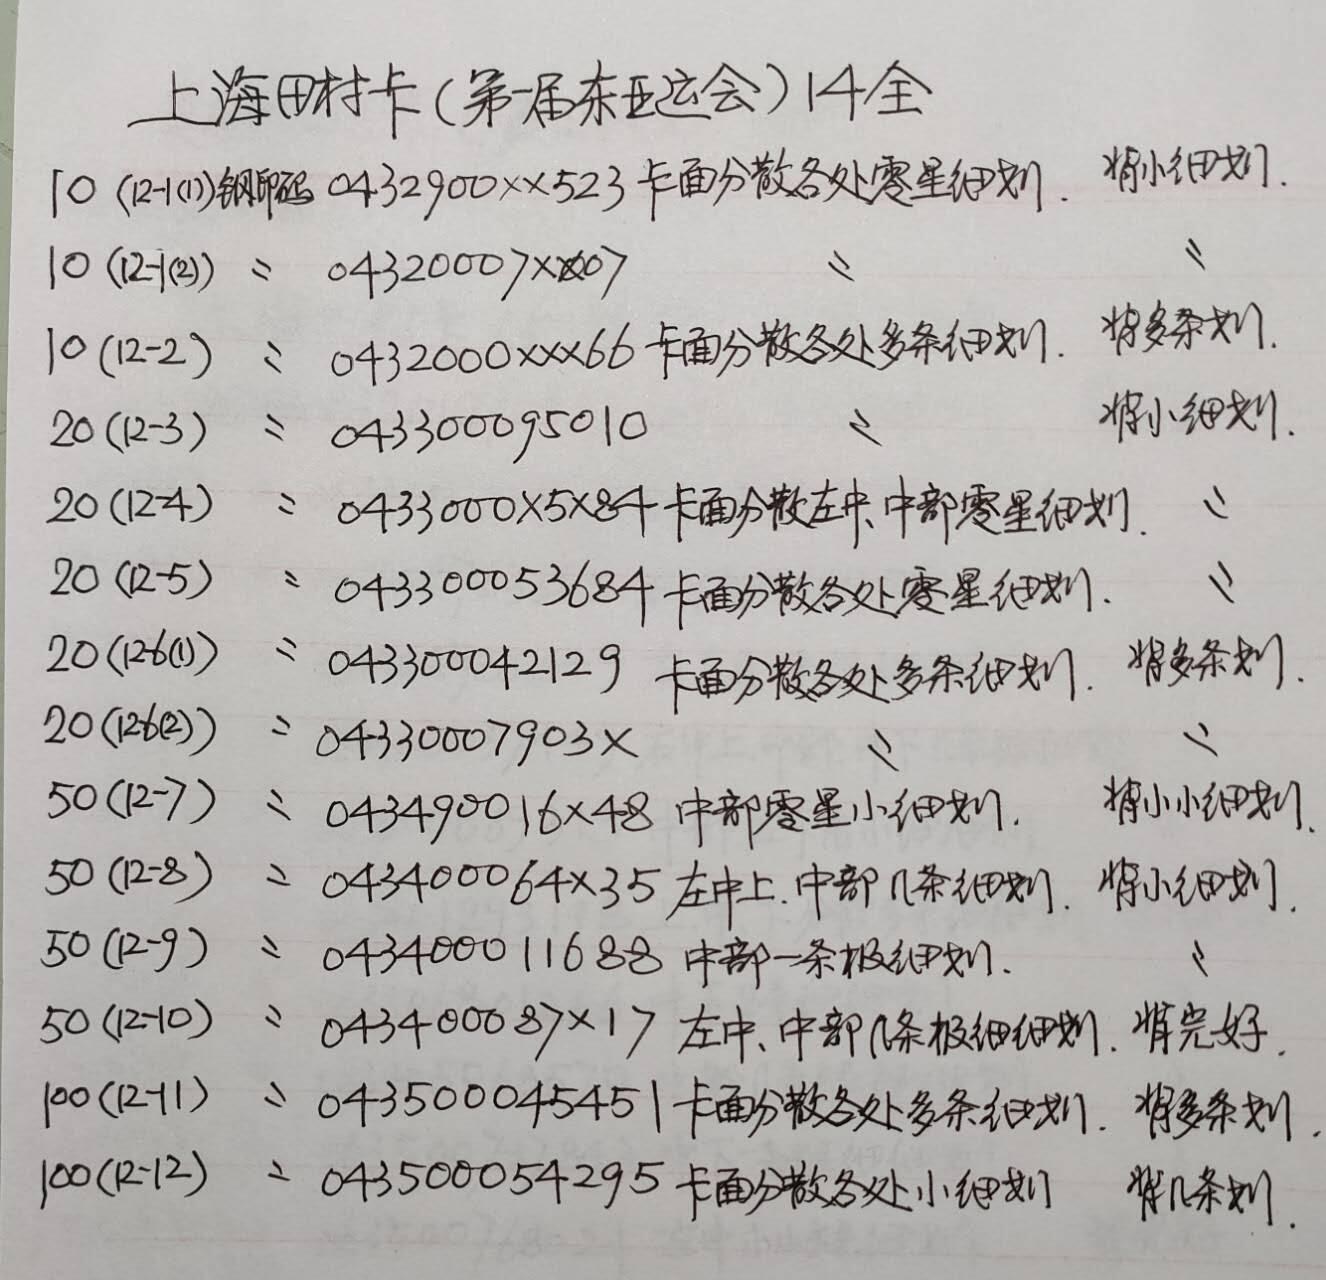 上海田村卡(第一届东亚运会)14全
10 (12-1(1)) 钢印码 0432900××523 卡面分散各处零星细划. 背小细划.
10 (12-1(2)) 〃 04320007××07 〃 〃
10 (12-2) 〃 0432000×××66 卡面分散各处多条细划. 背多条划.
20 (12-3) 〃 043300095010 〃 背小细划.
20 (12-4) 〃 0433000×5×84 卡面分散左中、中部零星细划. 〃
20 (12-5) 〃 043300053684 卡面分散各处零星细划. 〃
20 (12-6(1)) 〃 043300042129 卡面分散各处多条细划. 背多条划.
20 (12-6(2)) 〃 04330007903× 〃 〃
50 (12-7) 〃 043490016×48 中部零星小细划. 背小小细划.
50 (12-8) 〃 043400064×35 左中上.中部几条细划. 背小细划.
50 (12-9) 〃 043400011688 中部一条极细划. 〃
50 (12-10) 〃 043400087×17 左中、中部几条极细细划. 背完好.
100 (12-11) 〃 043500045451 卡面分散各处多条细划. 背多条划.
100 (12-12) 〃 043500054295 卡面分散各处小细划 背几条划.